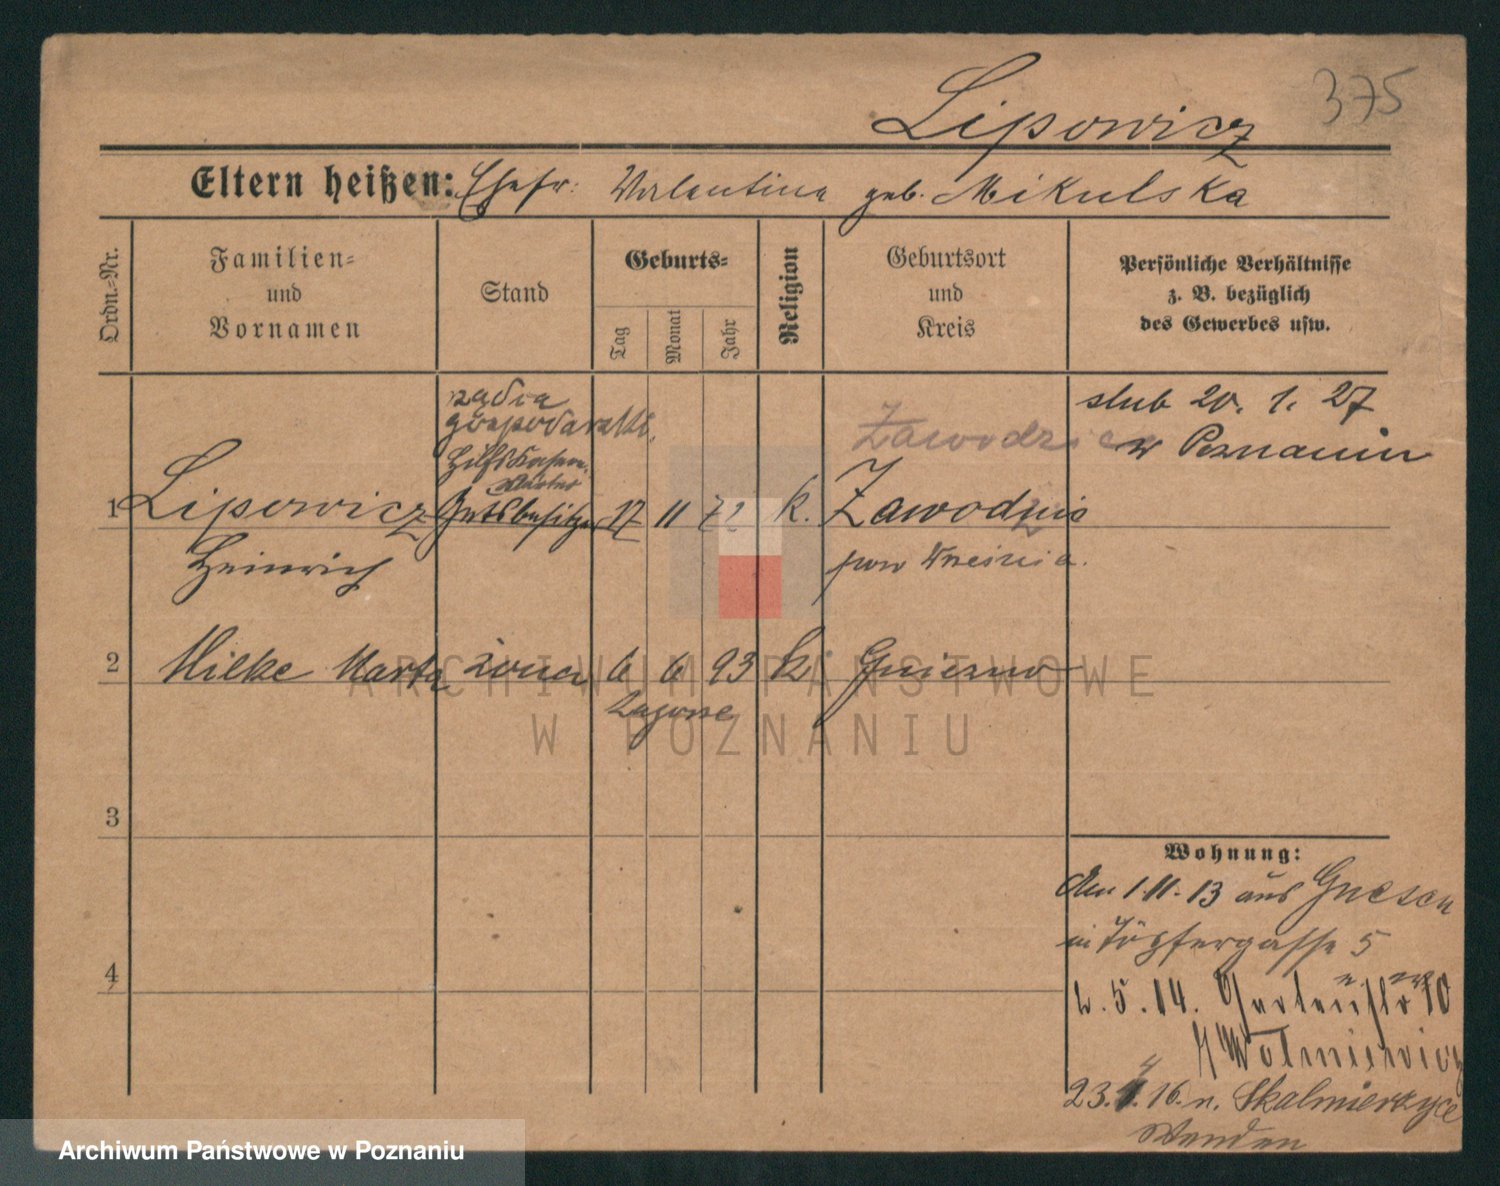 Lipowicz 375
Eltern heißen: Ehefr: Valentina geb. Mikulska
Ordn.-Nr.
Familien-
und
Vornamen
Stand
Geburts-
Tag
Monat
Jahr
Religion
Geburtsort
und
Kreis
Persönliche Verhältnisse
z. B. bezüglich
des Gewerbes usw.
rządca
gospodarski
slub 20. 1. 27
Zawodzie w Poznaniu
1 Lipowicz Gutsbesitzer 17 11 72 k. Zawodzie
Heinrich pow Września.
2 Milke Marta żona 6 6 93 k. Gniezno
3
4
Wohnung:
Am 1.11.13 aus Gnesen
in Töpfergasse 5
5.14. Gartenstr 10
Wolniewicz
23. 16. n. Skalmierzyce
ARCHIWUM PAŃSTWOWE
W POZNANIU
Archiwum Państwowe w Poznaniu